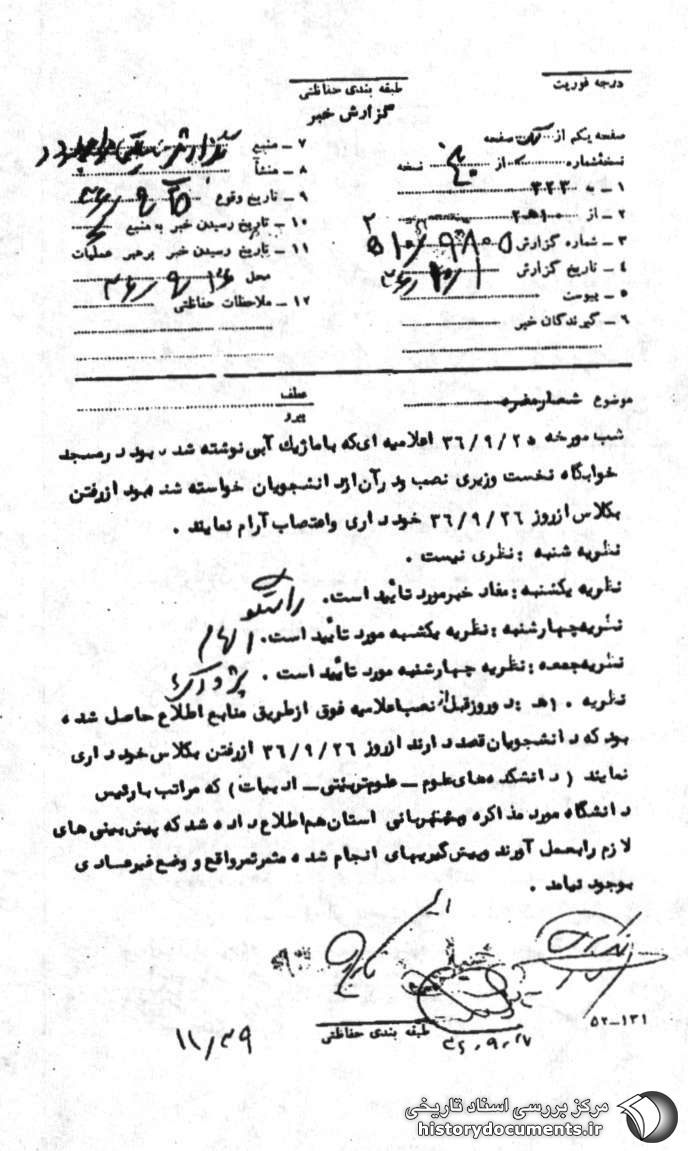 درجه فوریت
طبقه بندی حفاظتی
گزارش خبر
صفحه یکم از صفحه
نسخه شماره از نسخه
۱ ـ به ۳۲۳
۲ ـ از ۱۰ه۲
۳ ـ شماره گزارش
۴ ـ تاریخ گزارش
۵ ـ پیوست
۶ ـ گیرندگان خبر
۷ ـ منبع
۸ ـ منشأ
۹ ـ تاریخ وقوع
۱۰ ـ تاریخ رسیدن خبر به منبع
۱۱ ـ تاریخ رسیدن خبر برهبر عملیات
محل
۱۲ ـ ملاحظات حفاظتی
موضوع شعار مضره
عطف
پیرو
شب مورخه ۳۶/۹/۲۵ اعلامیه ای که با ماژیك آبی نوشته شده بود در مسجد
خوابگاه نخست وزیری نصب و در آن از دانشجویان خواسته شده بود از رفتن
بکلاس از روز ۳۶/۹/۲۶ خودداری و اعتصاب آرام نمایند .
نظریه شنبه : نظری نیست .
نظریه یکشنبه : مفاد خبر مورد تأئید است.
نظریه چهارشنبه : نظریه یکشنبه مورد تأئید است. الهام
نظریه جمعه : نظریه چهارشنبه مورد تأئید است .
نظریه ۱۰ه : دو روز قبل از نصب اعلامیه فوق از طریق منابع اطلاع حاصل شده
بود که دانشجویان قصد دارند از روز ۳۶/۹/۲۶ از رفتن بکلاس خودداری
نمایند ( دانشکده های علوم ـ علوم تربیتی ـ ادبیات ) که مراتب با رئیس
دانشگاه مورد مذاکره و بشهربانی استان هم اطلاع داده شد که پیش بینی های
لازم را بعمل آورند و پیش گیریهای انجام شده مثمر ثمر واقع و وضع غیرعادی
بوجود نیامد .
طبقه بندی حفاظتی
۵۲-۱۳۱
۳۶.۹.۲۷
۱۱/۳۹
مرکز بررسی اسناد تاریخی
historydocuments.ir